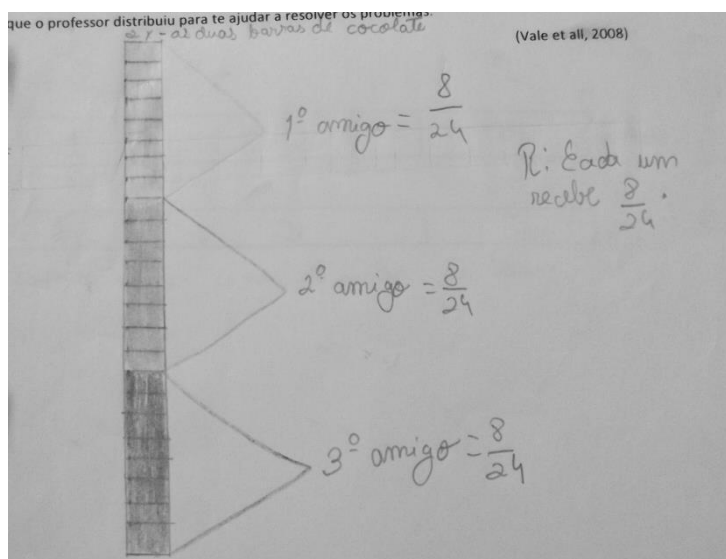 que o professor distribuiu para te ajudar a resolver os problemas.
r - as duas barras de cocolate
(Vale et all, 2008)
1º amigo = 8/24
R: Cada um
recebe 8/24.
2º amigo = 8/24
3º amigo = 8/24